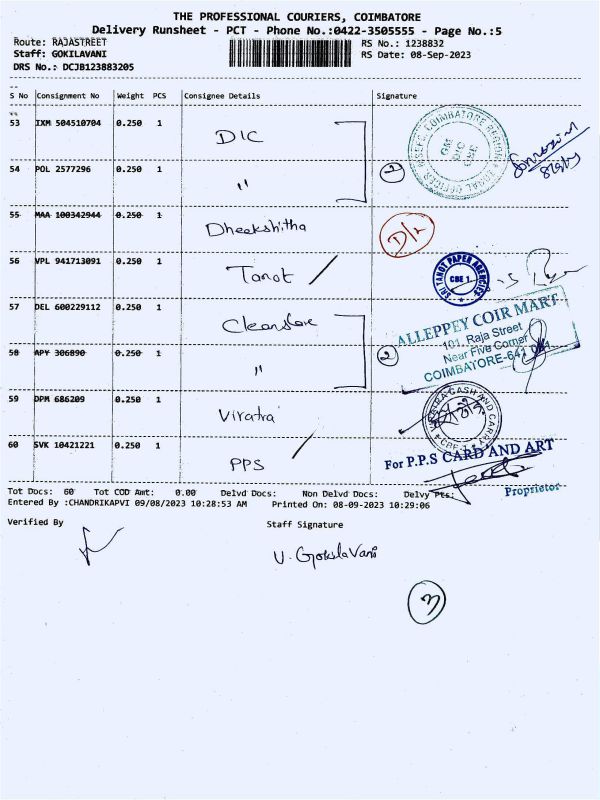 THE PROFESSIONAL COURIERS, COIMBATORE
Delivery Runsheet - PCT - Phone No.:0422-3505555 - Page No.:5
Route: RAJASTREET RS No.: 1238832
Staff: GOKILAVANI RS Date: 08-Sep-2023
DRS No.: DCJB123883205
S No Consignment No Weight PCS Consignee Details Signature
53 IXM 504510704 0.250 1 DIC
COIMBATORE REGION
GM
DIC
CBE
54 POL 2577296 0.250 1 " 2
55 MAA 100342944 0.250 1 Dheekshitha D/L
56 VPL 941713091 0.250 1 Tanot /
SRI TANOT PAPER AGENCIES
CBE 1.
57 DEL 600229112 0.250 1
ALLEPPEY COIR MART
101, Raja Street
Near Five Corner
COIMBATORE-641 001.
58 APY 306890 0.250 1 " 2
59 DPM 686209 0.250 1
CASH AND CARRY
CBE-1
60 SVK 10421221 0.250 1 PPS /
For P.P.S CARD AND ART
Proprietor
Tot Docs: 60 Tot COD Amt: 0.00 Delvd Docs: Non Delvd Docs: Delvy Pts:
Entered By :CHANDRIKAPVI 09/08/2023 10:28:53 AM Printed On: 08-09-2023 10:29:06
Verified By Staff Signature
V. GokilaVani
3